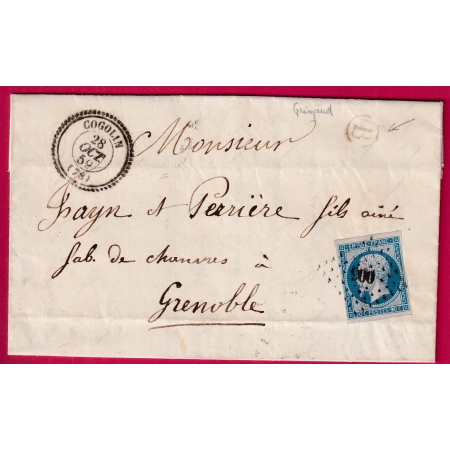 Grimaud
B
COGOLIN
28
OCT
59
(78)
Monsieur
Fayn et Perrière fils ainé
fab. de chanvres à
Grenoble
EMPIRE FRANC
900
20 C POSTES 20 C